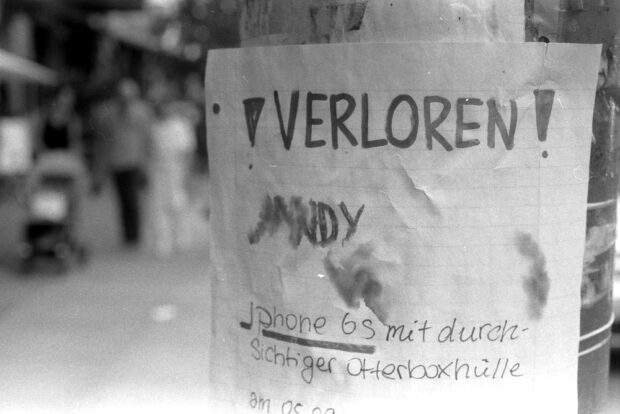 ! VERLOREN!
Iphone 6s mit durch-
sichtiger Otterboxhülle
am 05.09